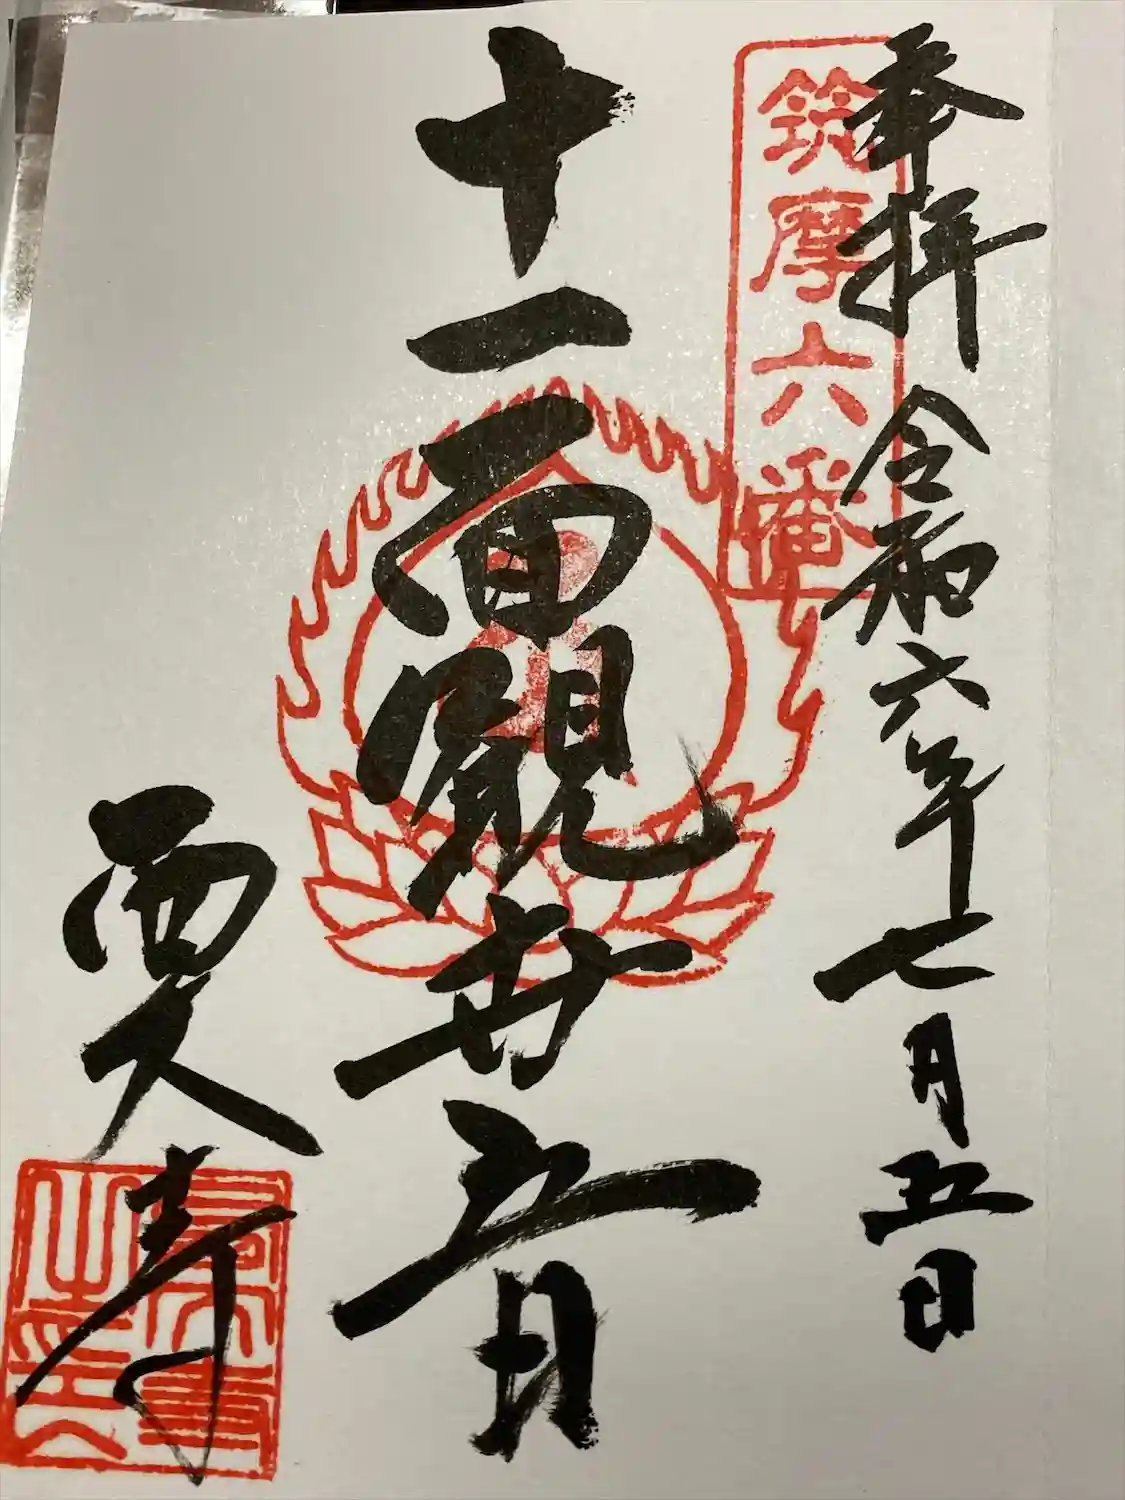 奉拝 令和六年七月五日
筑摩六番
十一面観世音